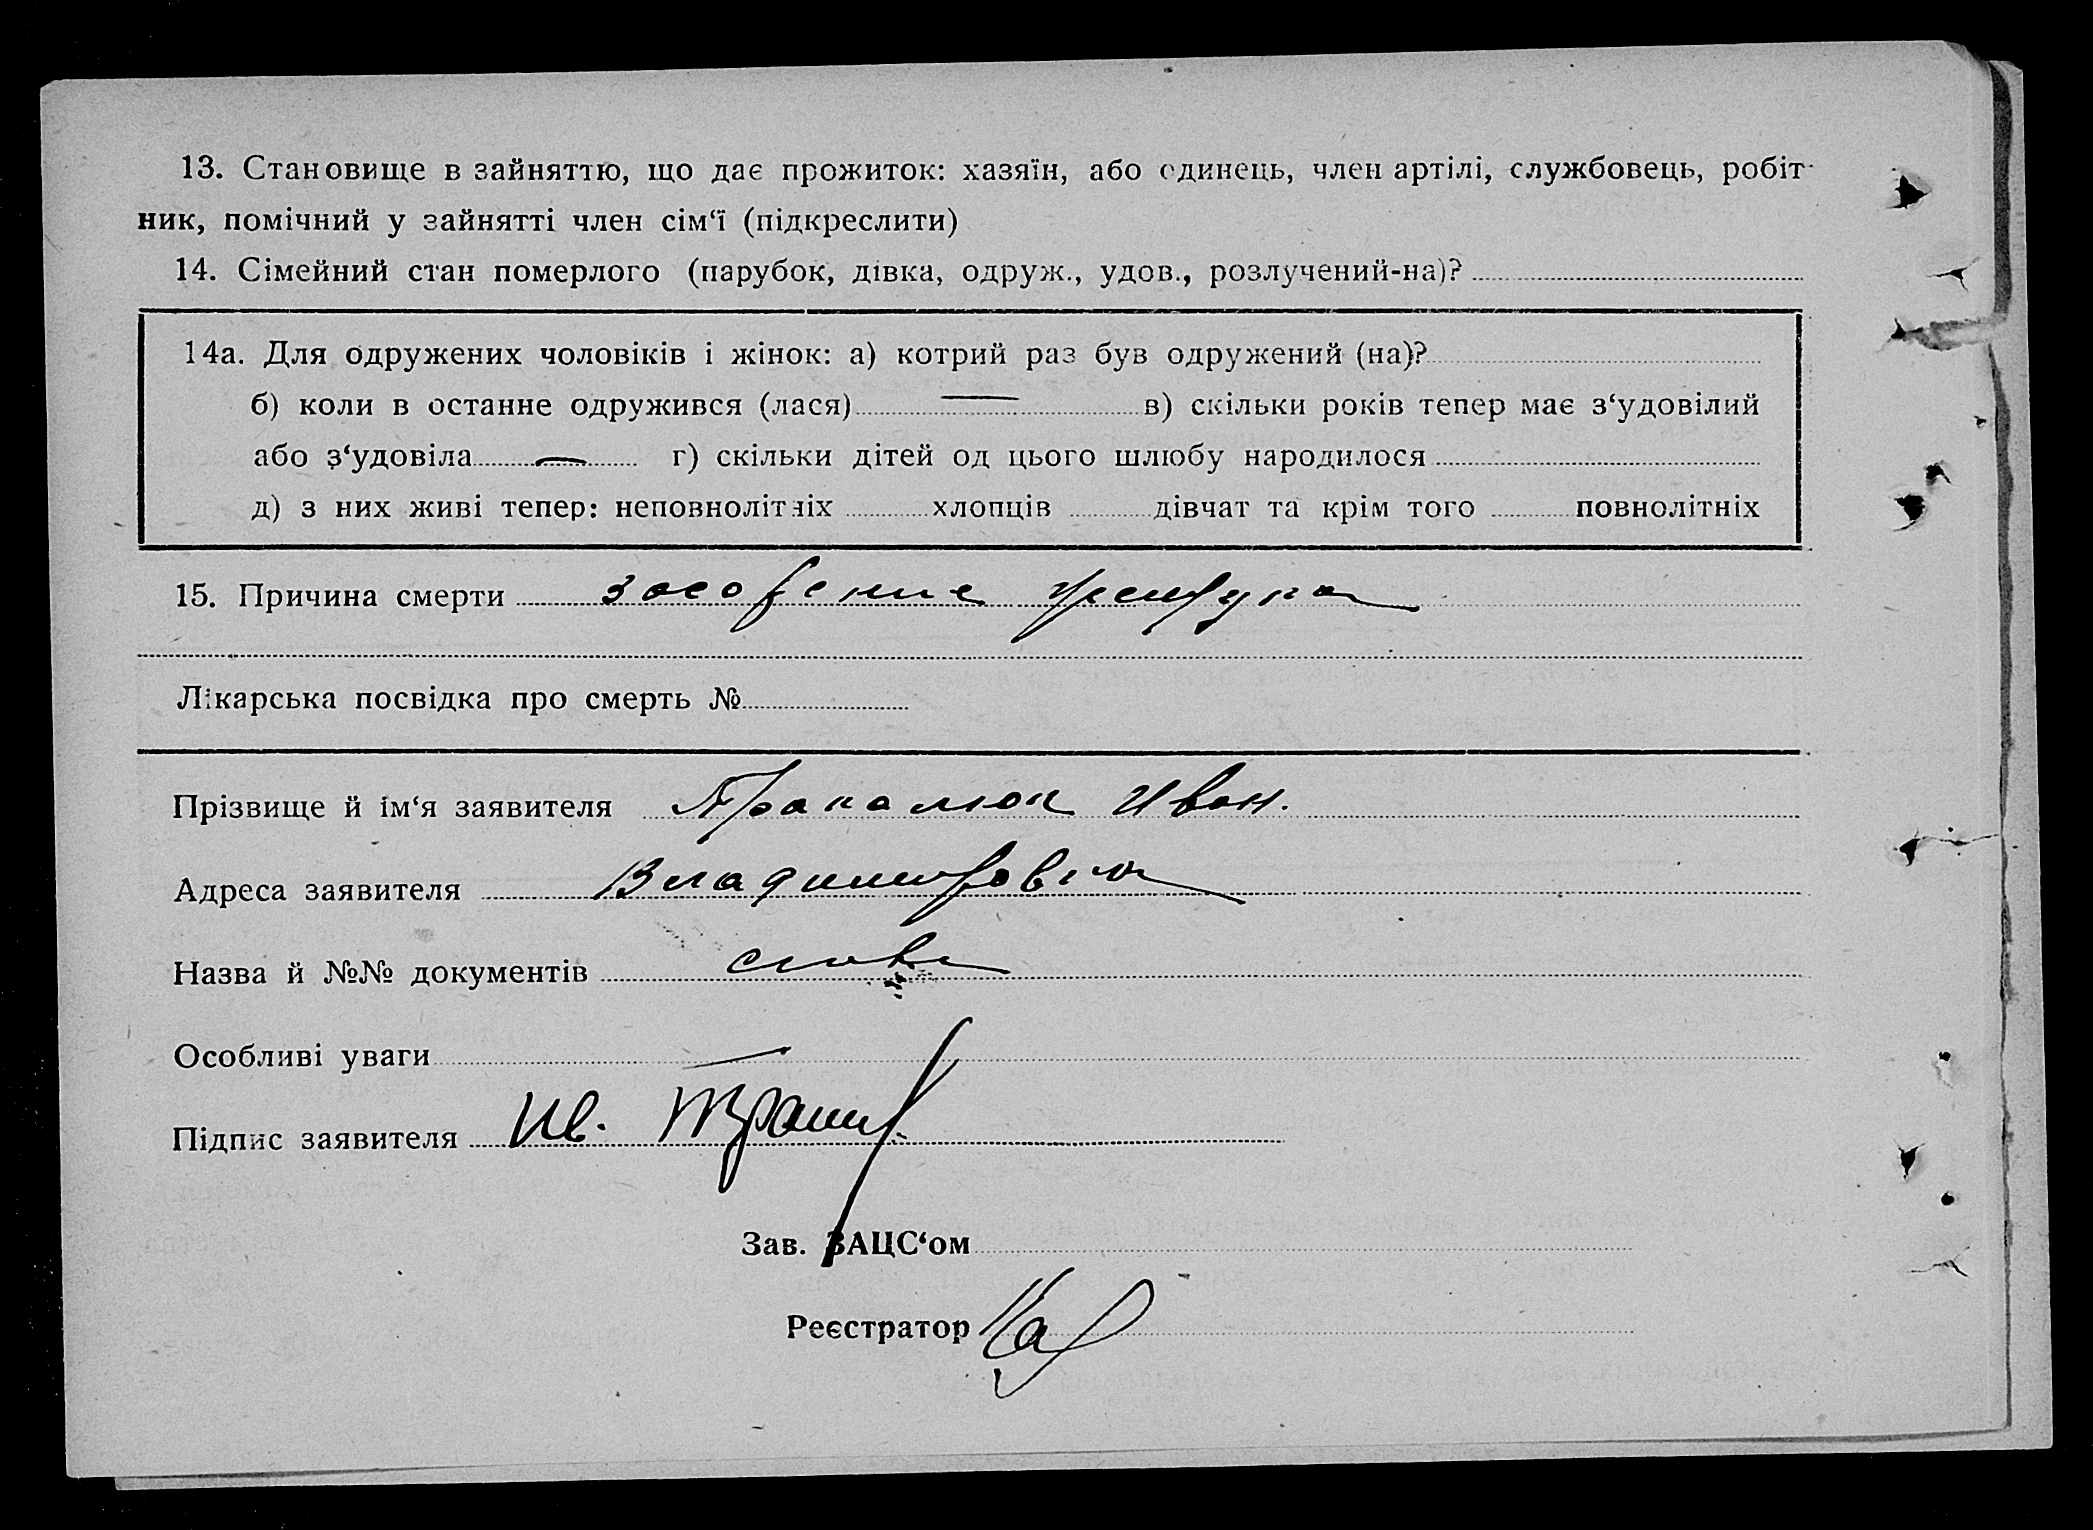 13. Становище в зайняттю, що дає прожиток: хазяїн, або одинець, член артілі, службовець, робіт-
ник, помічний у зайнятті член сім‘ї (підкреслити)
14. Сімейний стан померлого (парубок, дівка, одруж., удов., розлучений-на)?
14а. Для одружених чоловіків і жінок: а) котрий раз був одружений (на)?
б) коли в останне одружився (лася) — в) скільки років тепер має з‘удовілий
або з‘удовіла — г) скільки дітей од цього шлюбу народилося
д) з них живі тепер: неповнолітніх хлопців дівчат та крім того повнолітніх
15. Причина смерти засорение желудка
Лікарська посвідка про смерть №
Прізвище й ім‘я заявителя Иван.
Адреса заявителя
Назва й №№ документів
Особливі уваги —
Підпис заявителя Ив.
Зав. ЗАЦС‘ом
Реєстратор